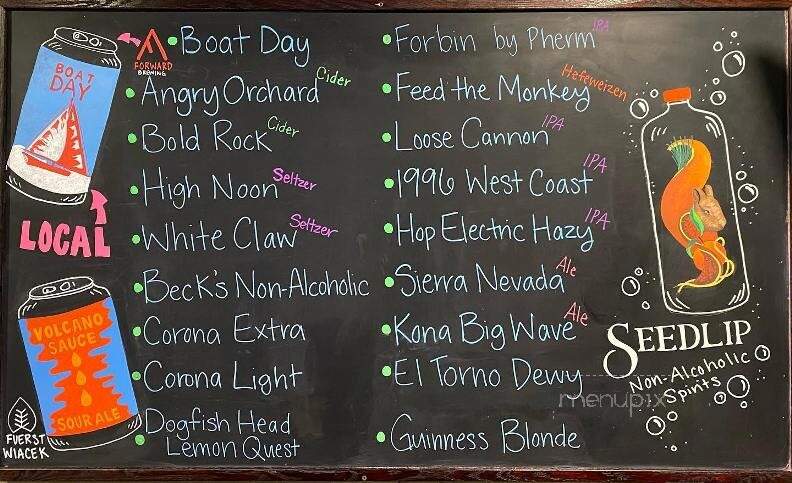 BOAT DAY
LOCAL
VOLCANO SAUCE
SOUR ALE
FUERST WIACEK
FORWARD
BREWING
• Boat Day
• Angry Orchard Cider
• Bold Rock Cider
• High Noon Seltzer
• White Claw Seltzer
• Beck's Non-Alcoholic
• Corona Extra
• Corona Light
• Dogfish Head
Lemon Quest
• Forbin by Pherm IPA
• Feed the Monkey Hefeweizen
• Loose Cannon IPA
• 1996 West Coast IPA
• Hop Electric Hazy IPA
• Sierra Nevada Ale
• Kona Big Wave Ale
• El Torno Dewy
• Guinness Blonde
SEEDLIP
Non-Alcoholic
Spirits
menupix